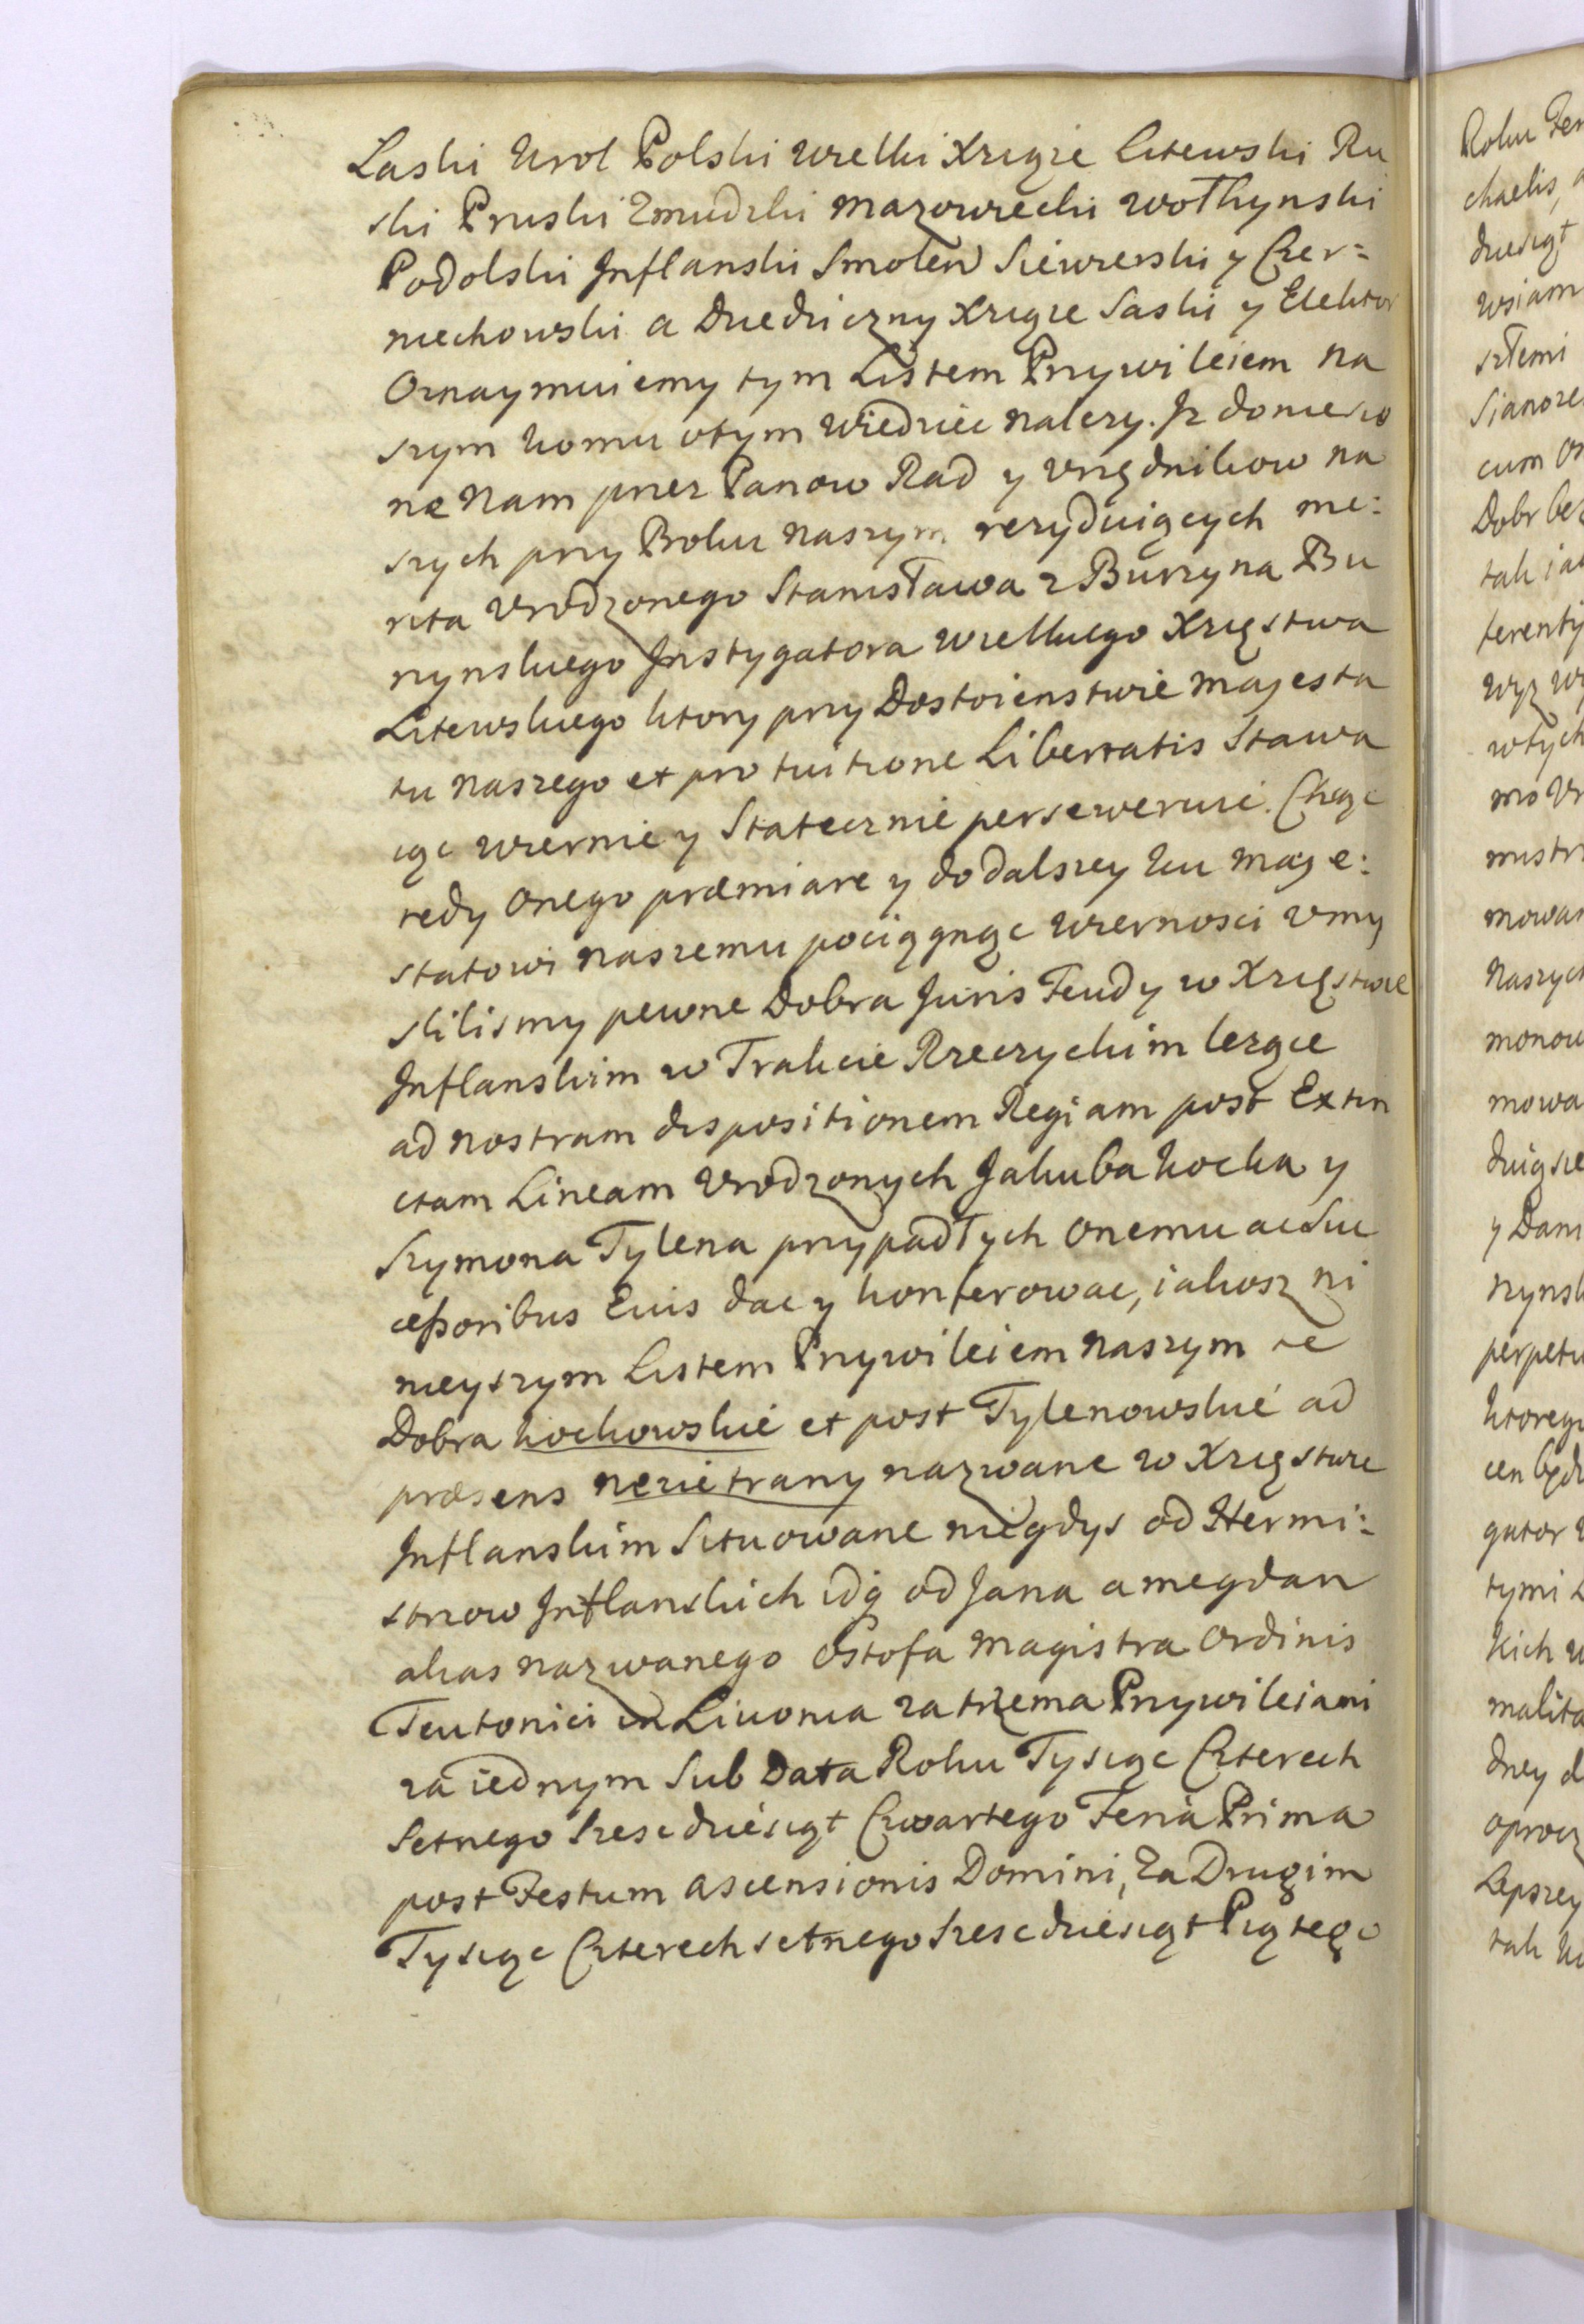 Laski Krol Polski wielki Xiąze Litewski Ru
ski Pruski Zmudzki mazowiecki wołhynski
Podolski Inflanski Smolen Siewierski y Czer=
niechowski a Dziedziczny Xiąze Saski y Elektor
Oznaymuiemy tym Listem Przywileiem na
szym komu otym wiedziec nalezy. Iz doniesio
ne nam przez Panow Rad y vrzędnikow na
szych przy Boku naszym rezyduiących me:
rita vrodzonego Stanisława z Burzyna Bu
rzynskiego Instygatora wielkiego Xięstwa
Litewskiego ktory przy Dostoienstwie majesta
tu naszego et pro tuitione Libertatis Stawa
iąc wiernie y Statecznie perseweruie. Chcąc
tedy onego præmiare y do dalszey ku maje:
statowi naszemu pociągnąc wiernosci vmy
slilismy pewne Dobra Juris Feudy w Xięstwie
Inflanskim w Trakcie Rzeczyckim lezące
ad nostram dispositionem Regiam post Extin
ctam Lineam vrodzonych Jakuba kocka y
Szymona Tylena przypadłych onemu ac Suc
cessoribus Eius dac y konferowac, iakosz ni
nieyszym Listem Przywileiem naszym te
Dobra kockowskie et post Tylenowskie ad
præsens nerzietrany nazwane w Xięstwie
Inflanskim Situowane niegdys od Hermi:
strzow Inflanskich idq od Jana a megdan
alias nazwanego Ostofa magistra Ordinis
Teutonici in Livonia za trzema Przywileiami
za iednym Sub Data Roku Tysiąc Czterech
Setnego Szescdziesiąt Czwartego Feria Prima
post Festum ascensionis Domini, Za Drugim
Tysiąc Czterechsetnego Szescdziesiąt Piątego
Roku
chaelis,
dziesiąt
wsiam
cum
Dobr bez
wtych
mowa
y Dani
perpetu
gator
tymi
kich
malita
oprocz
Lepszey
tak